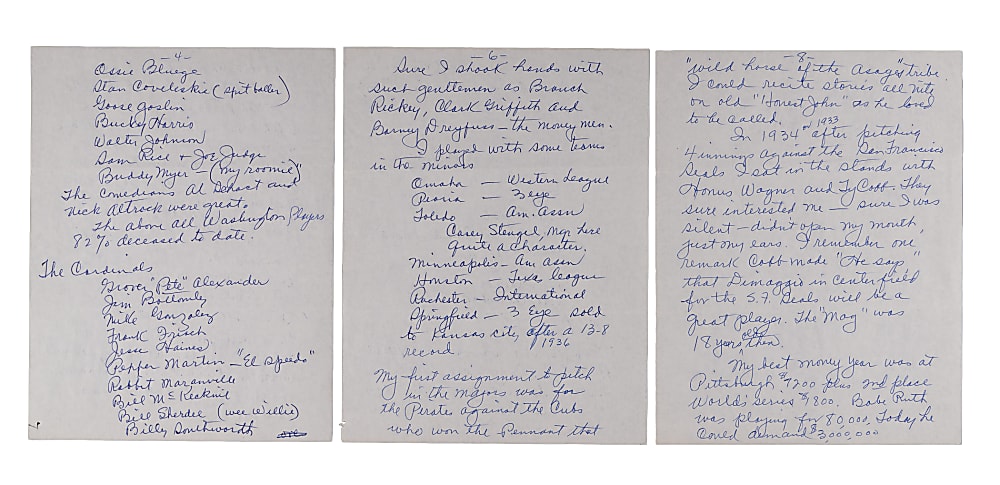 -4-
Ossie Bluege
Stan Coveleskie (spit baller)
Goose Goslin
Bucky Harris
Walter Johnson
Sam Rice + Joe Judge
Buddy Myer - (my roomie)
The comedians Al Schact and
Nick Altrock were great.
The above all Washington Players
82% deceased to date.
The Cardinals
Grover "Pete" Alexander
Jim Bottomley
Mike Gonzalez
Frank Frisch
Jesse Haines
Pepper Martin - "El Speedo"
Rabbit Maranville
Bill McKechnie
Bill Sherdel (wee willie)
Billy Southworth
-6-
Sure I shook hands with
such gentlemen as Branch
Rickey, Clark Griffith and
Barney Dreyfuss - the money men.
I played with some teams
in the minors
Omaha - Western League
Peoria - 3 eye
Toledo - Am. Assn
Casey Stengel, Mgr here
Quite a character.
Minneapolis - Am Assn
Houston - Texas league
Rochester - International
Springfield - 3 Eye sold
to Kansas city, after a 13-8
record. 1936
My first assignment to pitch
in the majors was for
the Pirates against the Cubs
who won the Pennant that
-8-
"wild horse of the Asage" tribe.
I could recite stories all nite
on old "Honest John" as he loved
to be called. 1933
In 1934 or after pitching
4 innings against the San Francisco
Seals I sat in the stands with
Honus Wagner and Ty Cobb. They
sure interested me - sure I was
silent - didn't open my mouth,
just my ears. I remember one
remark Cobb made "He says"
that Dimaggio in center field
for the S.F. Seals will be a
great player. The "Mag" was
18 years old then.
My best money year was at
Pittsburgh $7200 plus 2nd place
World's Series $1800. Babe Ruth
was playing for 80,000. Today he
could demand $3,000,000